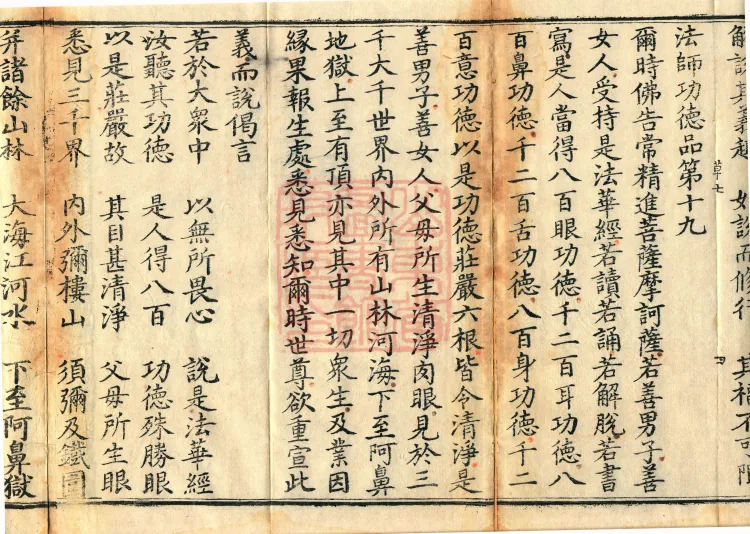 解說其義趣　如說而修行　其福不可限
法師功德品第十九
草七
爾時佛告常精進菩薩摩訶薩若善男子善
女人受持是法華經若讀若誦若解脫若書
寫是人當得八百眼功德千二百耳功德八
百鼻功德千二百舌功德八百身功德千二
百意功德以是功德莊嚴六根皆令清淨是
善男子善女人父母所生清淨肉眼見於三
千大千世界內外所有山林河海下至阿鼻
地獄上至有頂亦見其中一切衆生及業因
緣果報生處悉見悉知爾時世尊欲重宣此
義而說偈言
若於大衆中　以無所畏心　說是法華經
汝聽其功德　是人得八百　功德殊勝眼
以是莊嚴故　其目甚清淨　父母所生眼
悉見三千界　內外彌樓山　須彌及鐵圍
并諸餘山林　大海江河水　下至阿鼻獄